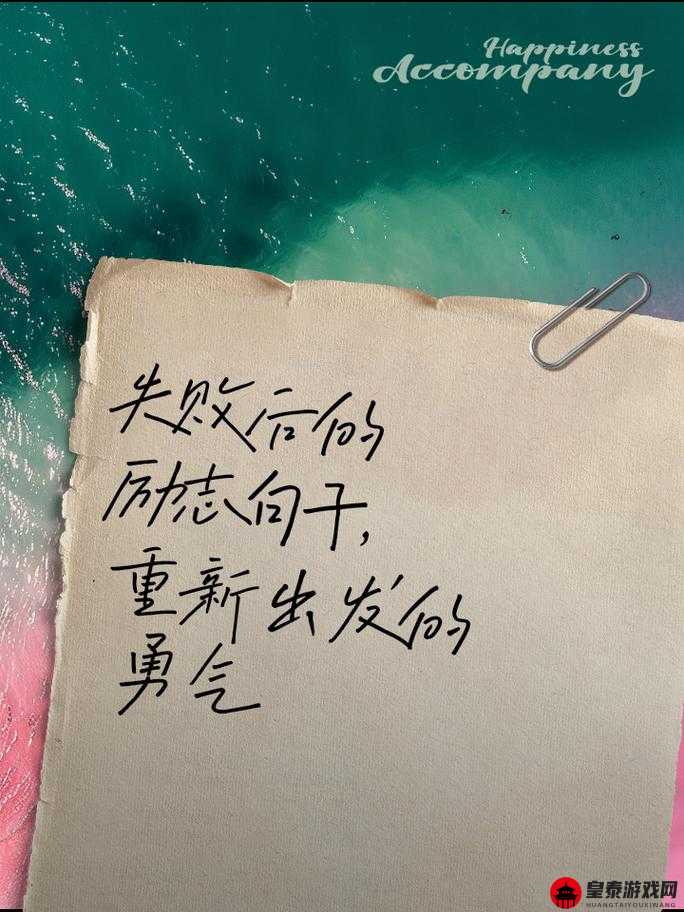 Happiness
Accompany
失败后的
励志句子,
重新出发的
勇气
皇泰游戏网
HUANGTAIYOUXIWANG